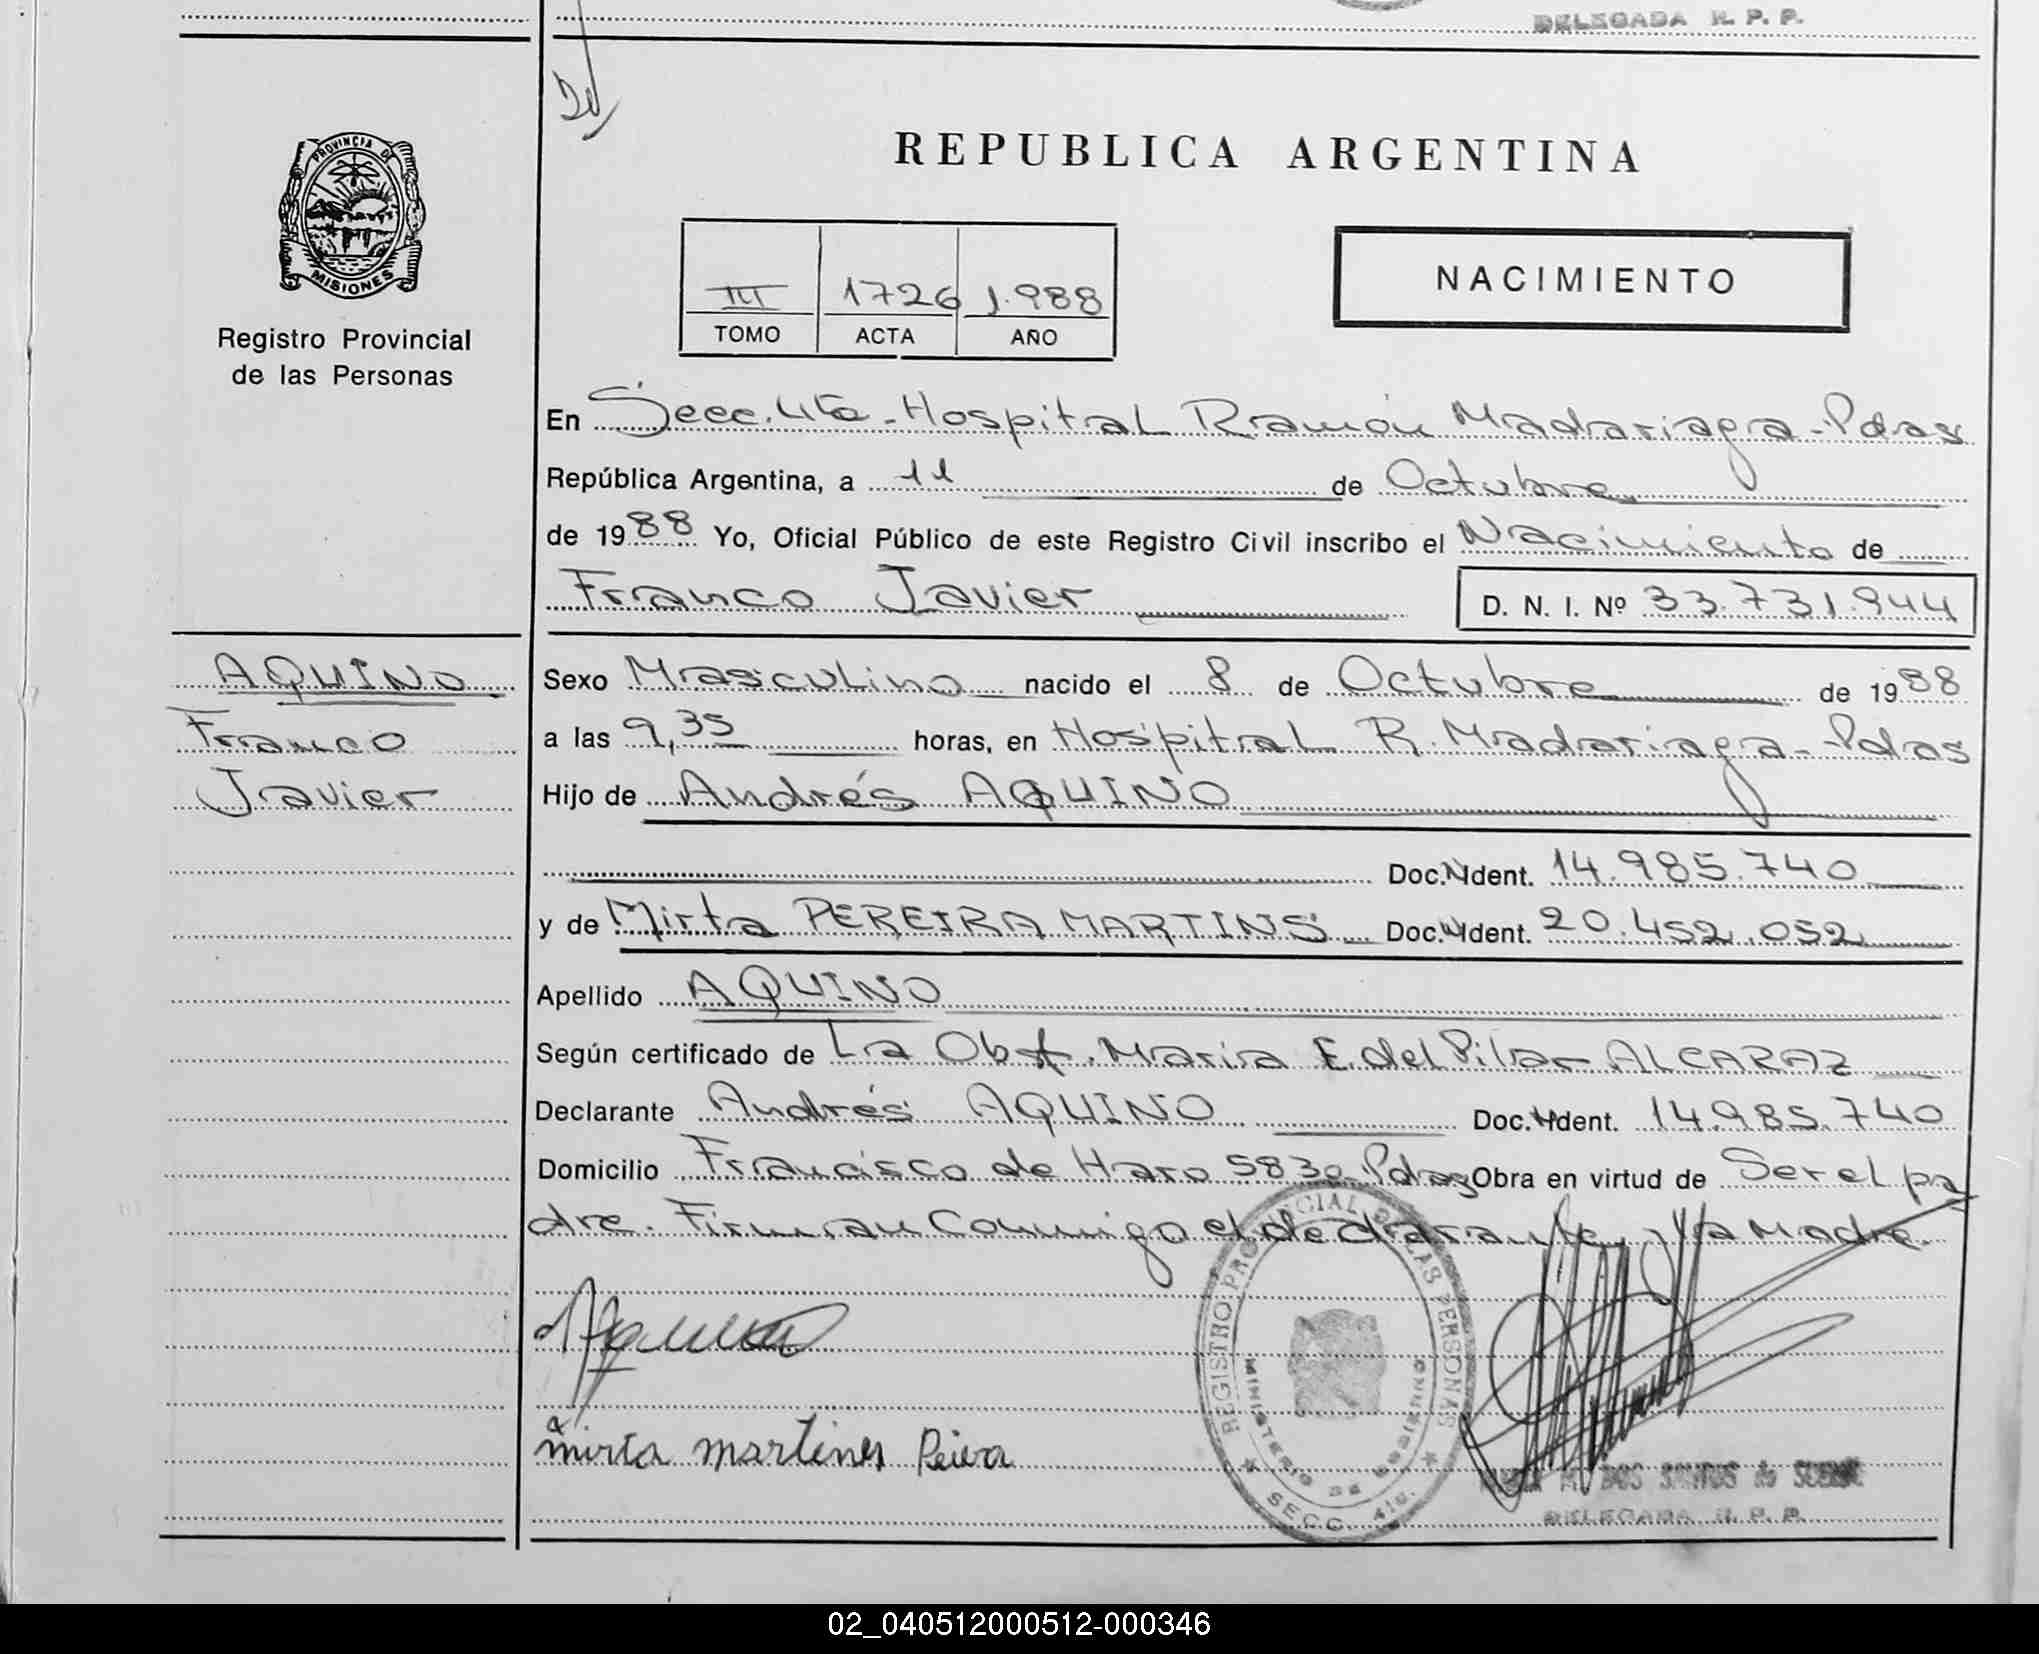 DELEGADA R. P. P.
REPUBLICA ARGENTINA
PROVINCIA DE
MISIONES
Registro Provincial
de las Personas
III 1726 1.988
TOMO ACTA AÑO
NACIMIENTO
En Secc. 4ta - Hospital Ramón Madariaga - Pdas
República Argentina, a 11 de Octubre
de 1988 Yo, Oficial Público de este Registro Civil inscribo el Nacimiento de
Franco Javier D. N. I. Nº 33.731.944
AQUINO
Franco
Javier
Sexo Masculino nacido el 8 de Octubre de 1988
a las 9,35 horas, en Hospital R. Madariaga - Pdas
Hijo de Andrés AQUINO
Doc. Ident. 14.985.740
y de Mirta PEREIRA MARTINS Doc. Ident. 20.452.052
Apellido AQUINO
Según certificado de La Obst. Maria E. del Pilar ALCARAZ
Declarante Andrés AQUINO Doc. Ident. 14.985.740
Domicilio Francisco de Haro 5830 Pdas Obra en virtud de Ser el pa
dre. Firman Conmigo el declarante y la Madre.
REGISTRO PROVINCIAL DE LAS PERSONAS
MINISTERIO DE GOBIERNO
SECC. 4ta.
mirta martines
DOS SANTOS de
DELEGADA R. P. P.
02_040512000512-000346